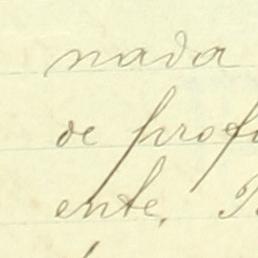 nada
de profu
ente. B